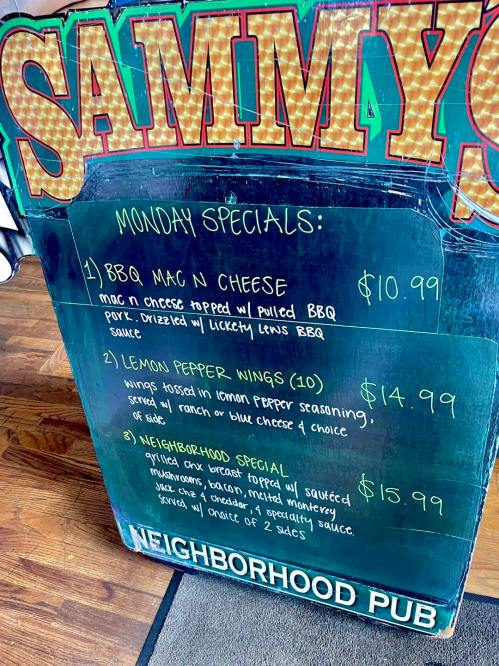 SAMMY'S
MONDAY SPECIALS:
1) BBQ MAC N CHEESE $10.99
mac n cheese topped w/ pulled BBQ
pork. Drizzled w/ Lickety Lews BBQ
sauce
2) LEMON PEPPER WINGS (10) $14.99
wings tossed in lemon pepper seasoning,
served w/ ranch or blue cheese & choice
of side
3) NEIGHBORHOOD SPECIAL $15.99
grilled chx breast topped w/ sautéed
mushrooms, bacon, melted monterey
Jack chz & cheddar, & specialty sauce.
served w/ choice of 2 sides
NEIGHBORHOOD PUB